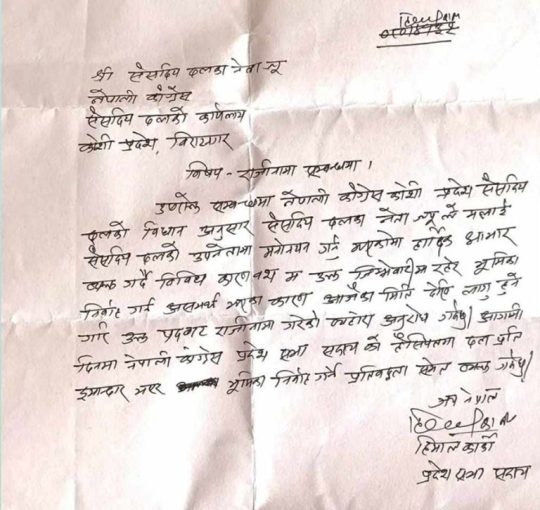 श्री संसदिय दलका नेता ज्यू
नेपाली काँग्रेस
संसदिय दलको कार्यालय
कोशी प्रदेश, विराटनगर
विषय - राजीनामा सम्बन्धमा ।
उपरोक्त सम्बन्धमा नेपाली काँग्रेस कोशी प्रदेश संसदिय
दलको विधान अनुसार संसदिय दलका नेता ज्यू ले मलाई
संसदिय दलको उपनेतामा मनोनयन गर्नु भएकोमा हार्दिक आभार
व्यक्त गर्दै विविध कारणवश म उक्त जिम्मेवारीमा रहेर भूमिका
निर्वाह गर्न असमर्थ भएका कारण आजैका मिति देखि लागु हुने
गरि उक्त पदबाट राजीनामा गरेको व्यहोरा अनुरोध गर्दछु। आगामी
दिनमा नेपाली काँग्रेस प्रदेश सभा सदस्य को हैसियतमा दल प्रति
इमान्दार भएर भूमिका निर्वाह गर्ने प्रतिवद्धता समेत व्यक्त गर्दछु।
जय नेपाल
हिमाल कार्की
प्रदेश सभा सदस्य